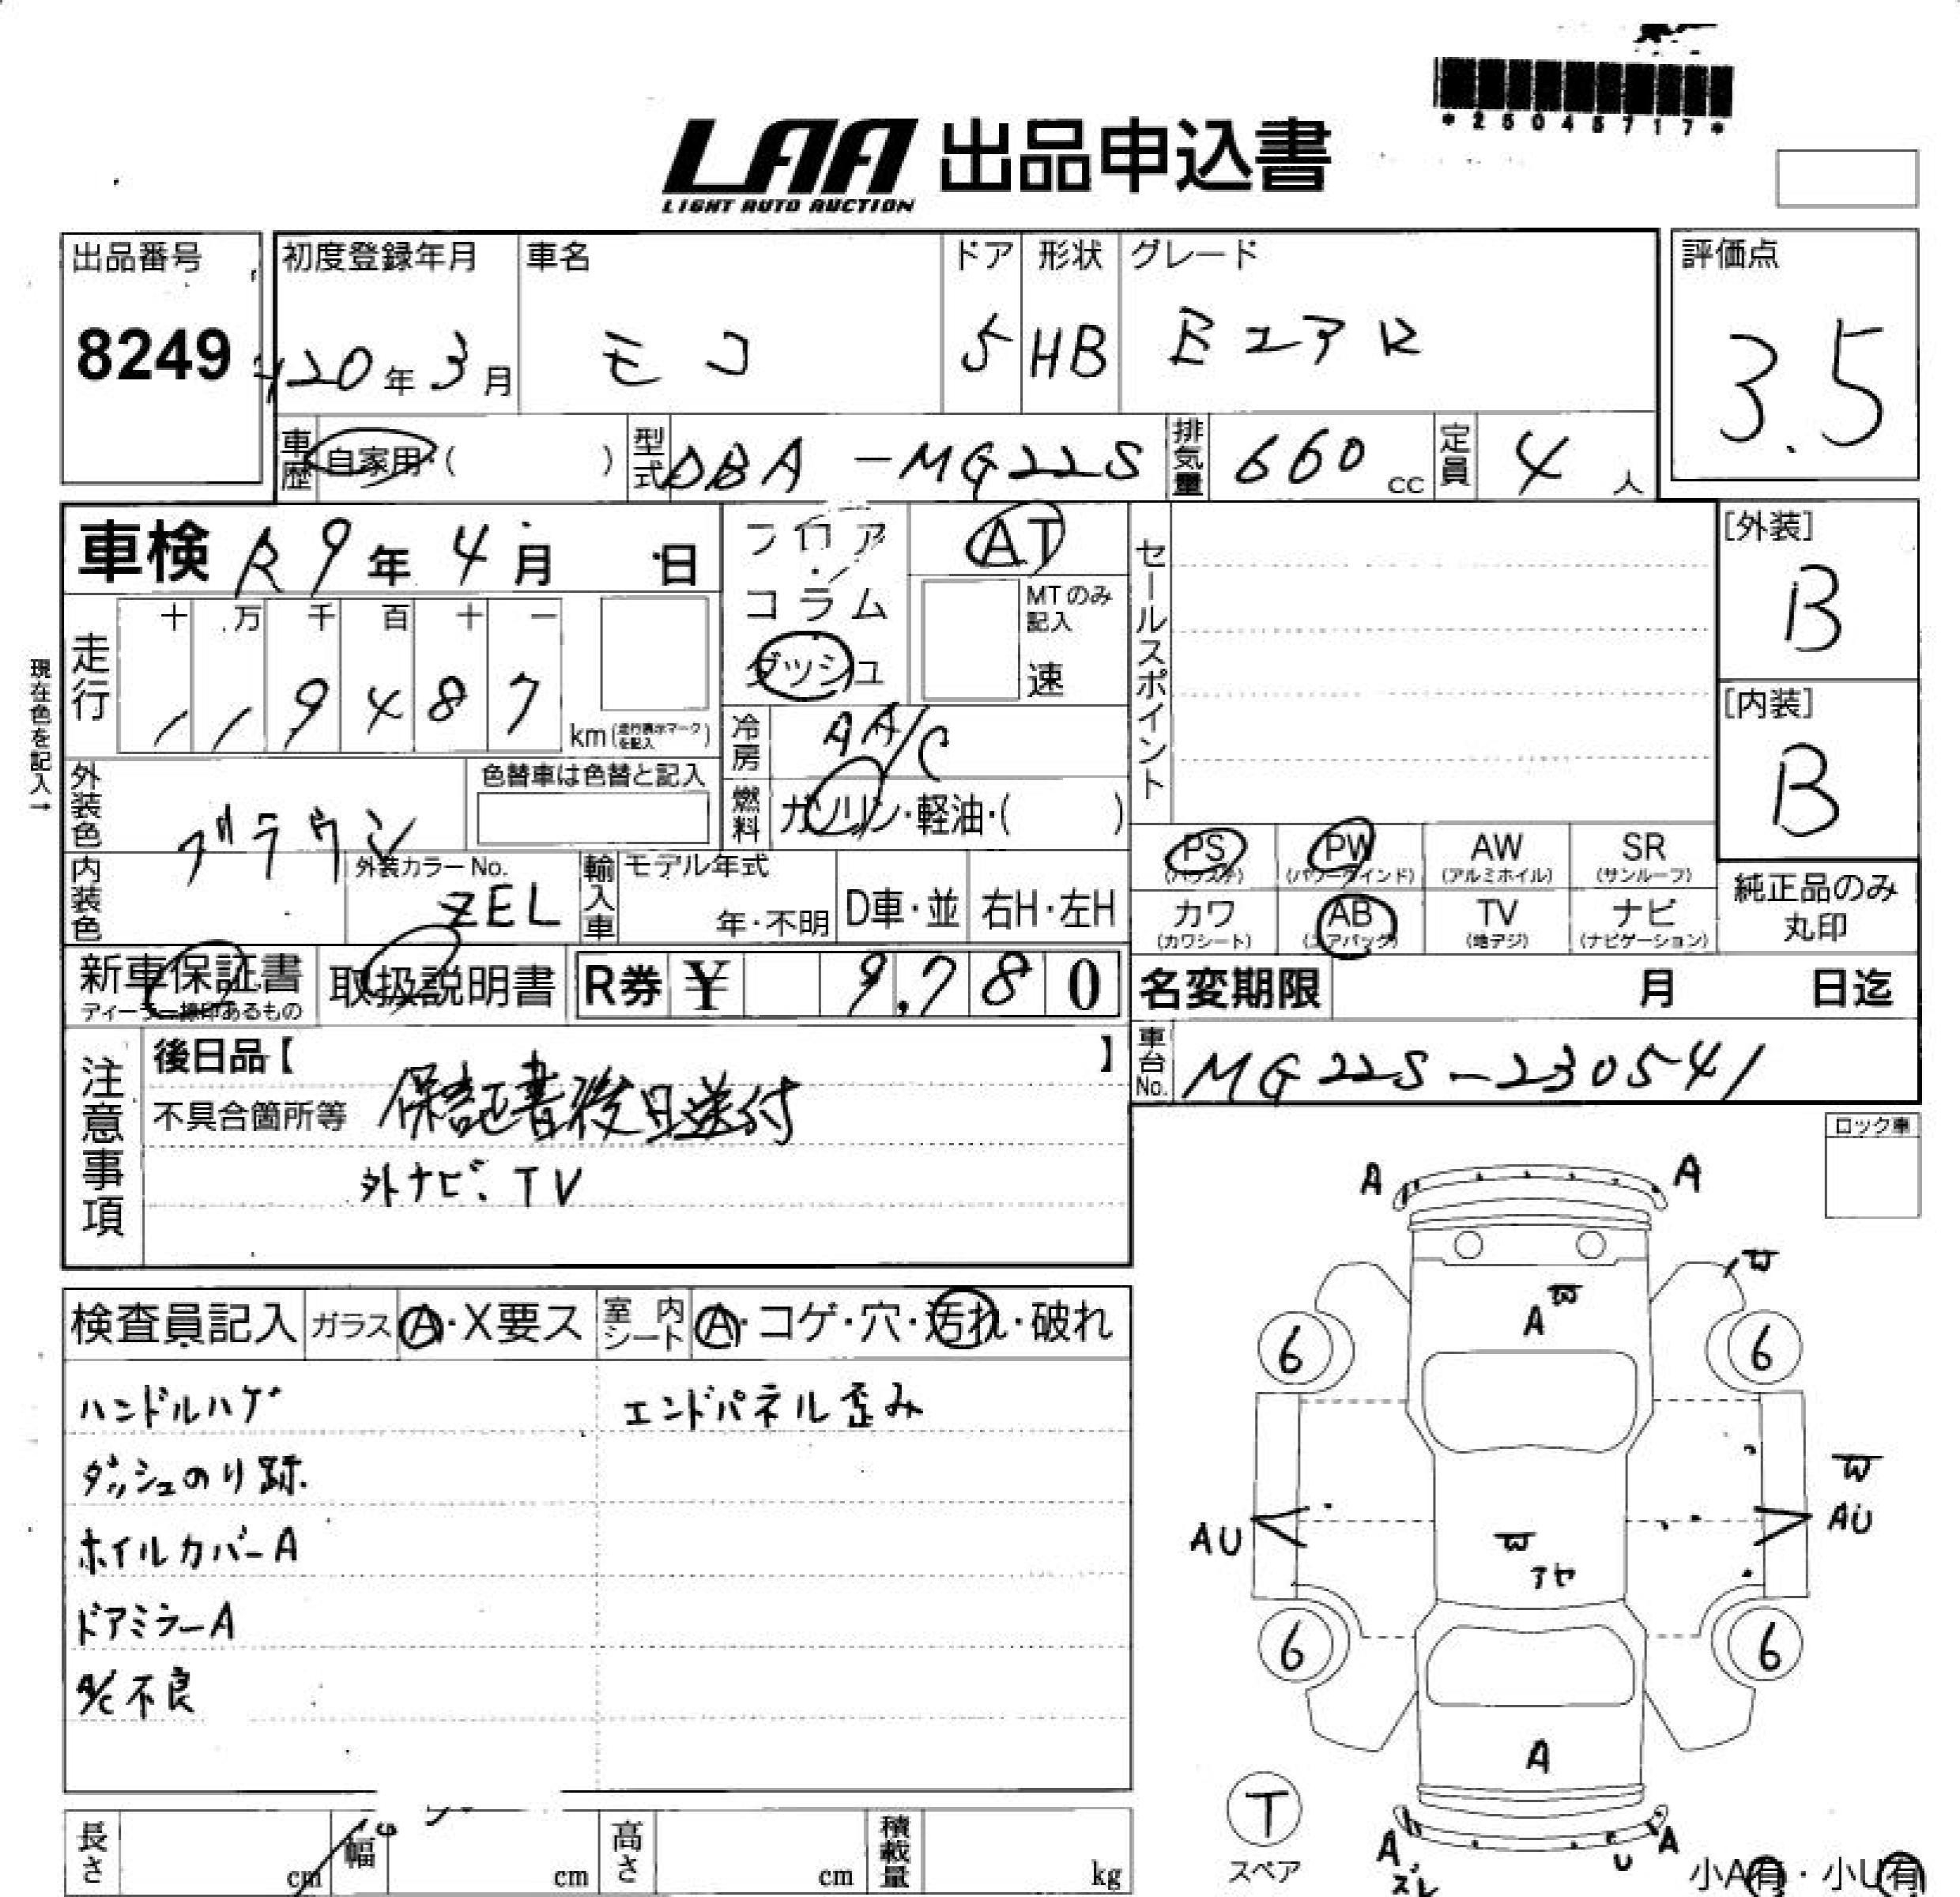 *25045717*
LAA 出品申込書
LIGHT AUTO AUCTION
出品番号 初度登録年月 車名 ドア 形状 グレード 評価点
8249 H20年3月 モコ 5 HB E 3.5
車歴 自家用・( ) 型式 DBA-MG22S 排気量 660cc 定員 4人
車検 R9年4月 日 フロア・コラム・ダッシュ AT セールスポイント [外装] B
MTのみ記入 速
現在色を記入→
走行 十 万 千 百 十 一
119487 km (走行表示マークを記入)
[内装] B
冷房 AA/C
外装色 ブラウン 色替車は色替と記入 燃料 ガソリン・軽油・( )
PS (パワステ) PW (パワーウインド) AW (アルミホイル) SR (サンルーフ)
内装色 外装カラーNo. ZEL 輸入車 モデル年式 年・不明 D車・並 右H・左H
カワ (カワシート) AB (エアバック) TV (地デジ) ナビ (ナビゲーション) 純正品のみ丸印
新車保証書 取扱説明書 R券 ¥ 9,780 名変期限 月 日迄
ディーラー捺印あるもの
注意事項 後日品【 】 車台No. MG22S-230541
不具合箇所等 保証書後日送付
外ナビ、TV
ロック車
A A
検査員記入 ガラス A・X要ス 室内シート A・コゲ・穴・汚れ・破れ
W
A W
6 6
ハンドルハゲ エンドパネル歪み
ダッシュのり跡
W
ホイルカバーA
AU W AU
アセ
ドアミラーA
6 6
A/C不良
A
T
スペア
A ズレ U A
小A有・小U有
長さ cm 幅 cm 高さ cm 積載量 kg